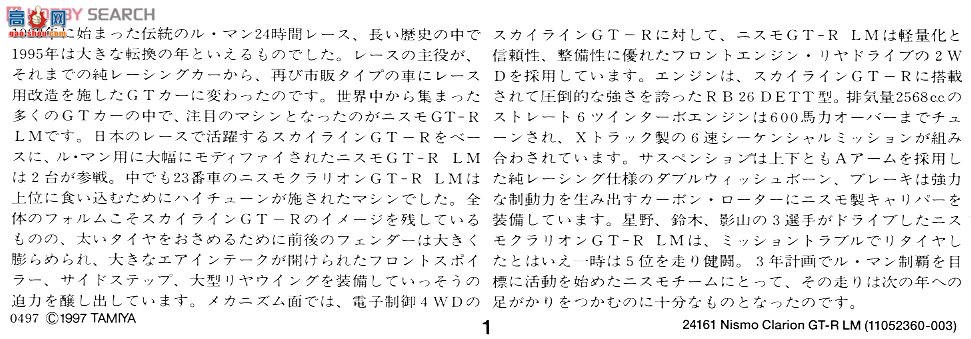 HOBBY SEARCH
高网
gaoshou.com
に始まった伝統のル・マン24時間レース、長い歴史の中で
1995年は大きな転換の年といえるものでした。レースの主役が、
それまでの純レーシングカーから、再び市販タイプの車にレース
用改造を施したＧＴカーに変わったのです。世界中から集まった
多くのＧＴカーの中で、注目のマシンとなったのがニスモGT-R
LMです。日本のレースで活躍するスカイラインＧＴ－Ｒをベー
スに、ル・マン用に大幅にモディファイされたニスモGT-R LM
は２台が参戦。中でも23番車のニスモクラリオンGT-R LMは
上位に食い込むためにハイチューンが施されたマシンでした。全
体のフォルムこそスカイラインＧＴ－Ｒのイメージを残している
ものの、太いタイヤをおさめるために前後のフェンダーは大きく
膨らめられ、大きなエアインテークが開けられたフロントスポイ
ラー、サイドステップ、大型リヤウイングを装備していっそうの
迫力を醸し出しています。メカニズム面では、電子制御４WDの
スカイラインＧＴ－Ｒに対して、ニスモGT-R LMは軽量化と
信頼性、整備性に優れたフロントエンジン・リヤドライブの２Ｗ
Ｄを採用しています。エンジンは、スカイラインＧＴ－Ｒに搭載
されて圧倒的な強さを誇ったＲＢ26 DETT型。排気量2568ccの
ストレート６ツインターボエンジンは600馬力オーバーまでチュ
ーンされ、Ｘトラック製の６速シーケンシャルミッションが組み
合わされています。サスペンションは上下ともＡアームを採用し
た純レーシング仕様のダブルウィッシュボーン、ブレーキは強力
な制動力を生み出すカーボン・ローターにニスモ製キャリパーを
装備しています。星野、鈴木、影山の３選手がドライブしたニス
モクラリオンGT-R LMは、ミッショントラブルでリタイヤし
たとはいえ一時は５位を走り健闘。３年計画でル・マン制覇を目
標に活動を始めたニスモチームにとって、その走りは次の年への
足がかりをつかむのに十分なものとなったのです。
0497 ©1997 TAMIYA
1
24161 Nismo Clarion GT-R LM (11052360-003)